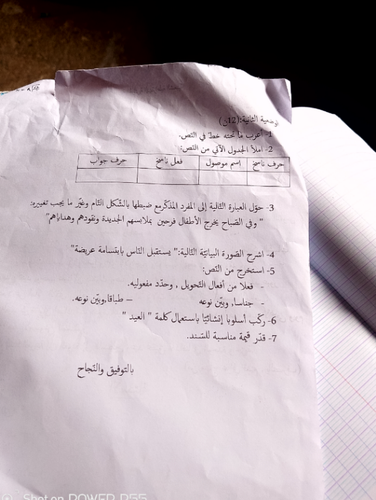 الوضعية الثانية: (12ن)
1- أعرب ما تحته خط في النّص.
2- املأ الجدول الآتي من النّص:
حرف ناسخ اسم موصول فعل ناسخ حرف جواب
3- حوّل العبارة التالية إلى المفرد المذكّر مع ضبطها بالشّكل التّام وغيّر ما يجب تغييره:
" وفي الصّباح يخرج الأطفال فرحين بملابسهم الجديدة ونقودهم وهداياهم"
4- اشرح الصّورة البيانيّة التّالية:" يستقبل النّاس بابتسامة عريضة"
5- استخرج من النّص:
- فعلا من أفعال التّحويل , وحدّد مفعوليه.
- جناسا, وبيّن نوعه – طباقا,وبيّن نوعه.
6- ركّب أسلوبا إنشائيّا باستعمال كلمة " العيد "
7- قدّر قيمة مناسبة للسّند.
بالتوفيق والنّجاح
Shot on POWER P55